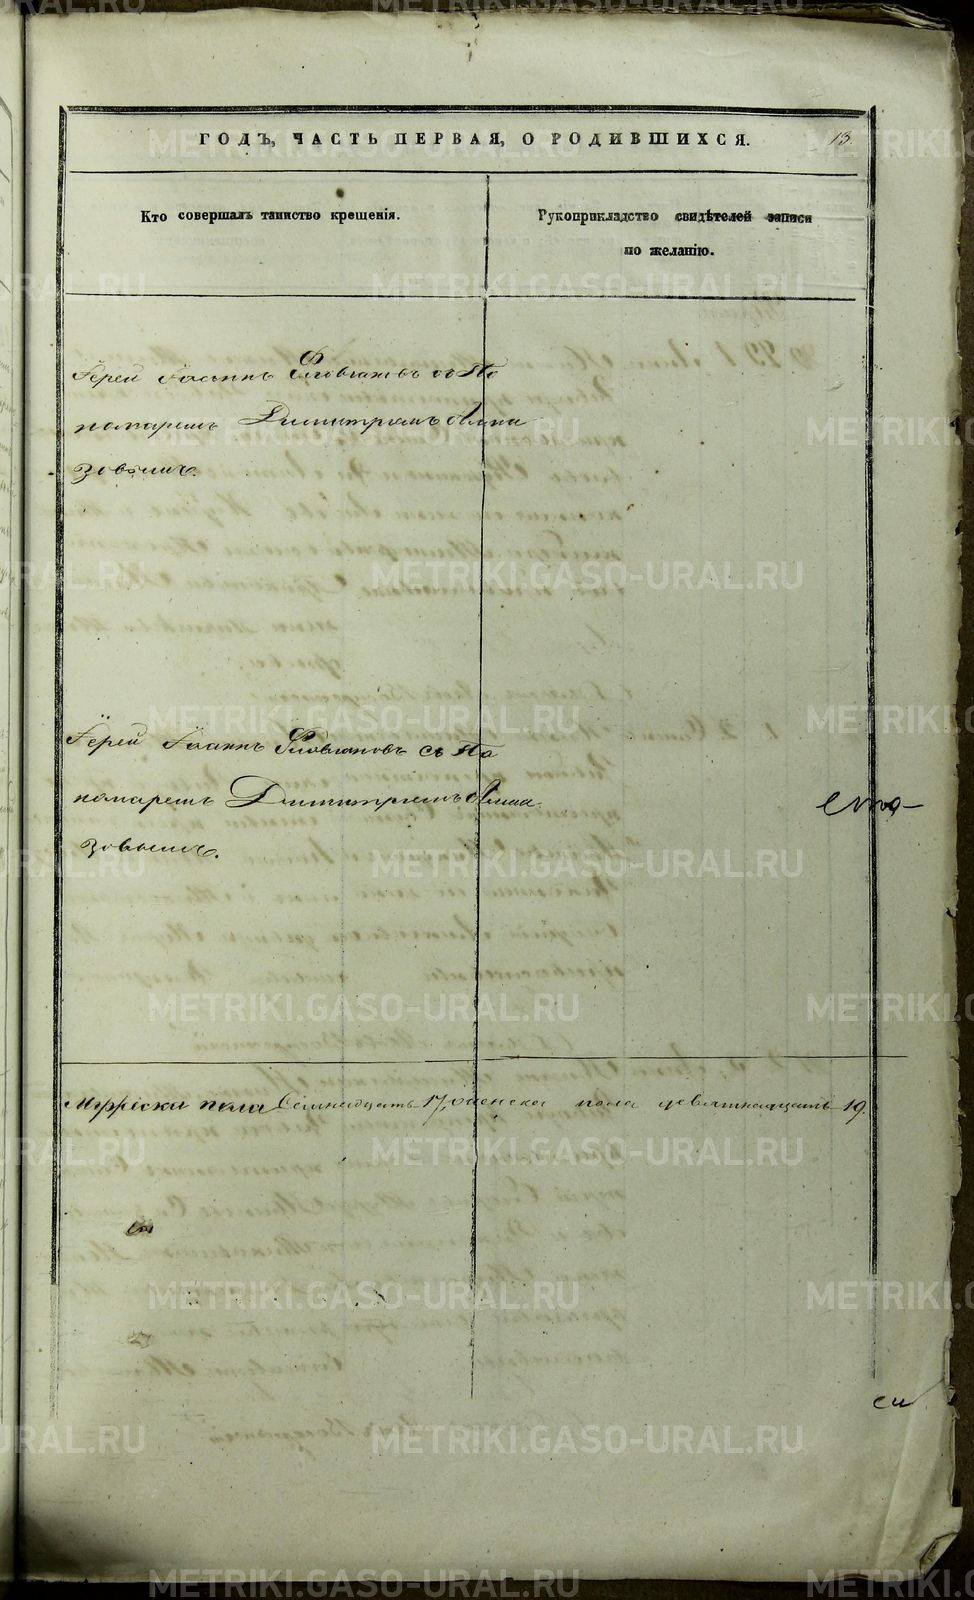 ГОДЪ, ЧАСТЬ ПЕРВАЯ, О РОДИВШИХСЯ.
13.
Кто совершалъ таинство крещенія.
Рукоприкладство свидѣтелей записи
по желанію.
Іерей Іоаннъ съ По
номаремъ Димитріемъ Алма
зовымъ.
Іерей Іоаннъ Словцовъ съ По
номаремъ Димитріемъ Алма
зовымъ.
Мужеска пола Семнадцать 17, женска пола девятнадцать 19.
METRIKI.GASO-URAL.RU